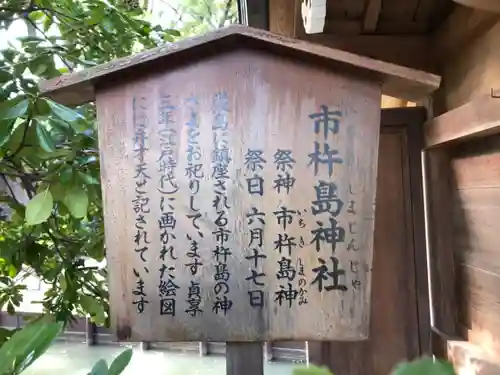 市杵島神社
しまじんじゃ
祭神 市杵島神
いちきしまのかみ
祭日 六月十七日
島に鎮座される市杵島の神
さまをお祀りしています 貞享
三年(江戸時代)に画かれた絵図
には弁才天と記されています